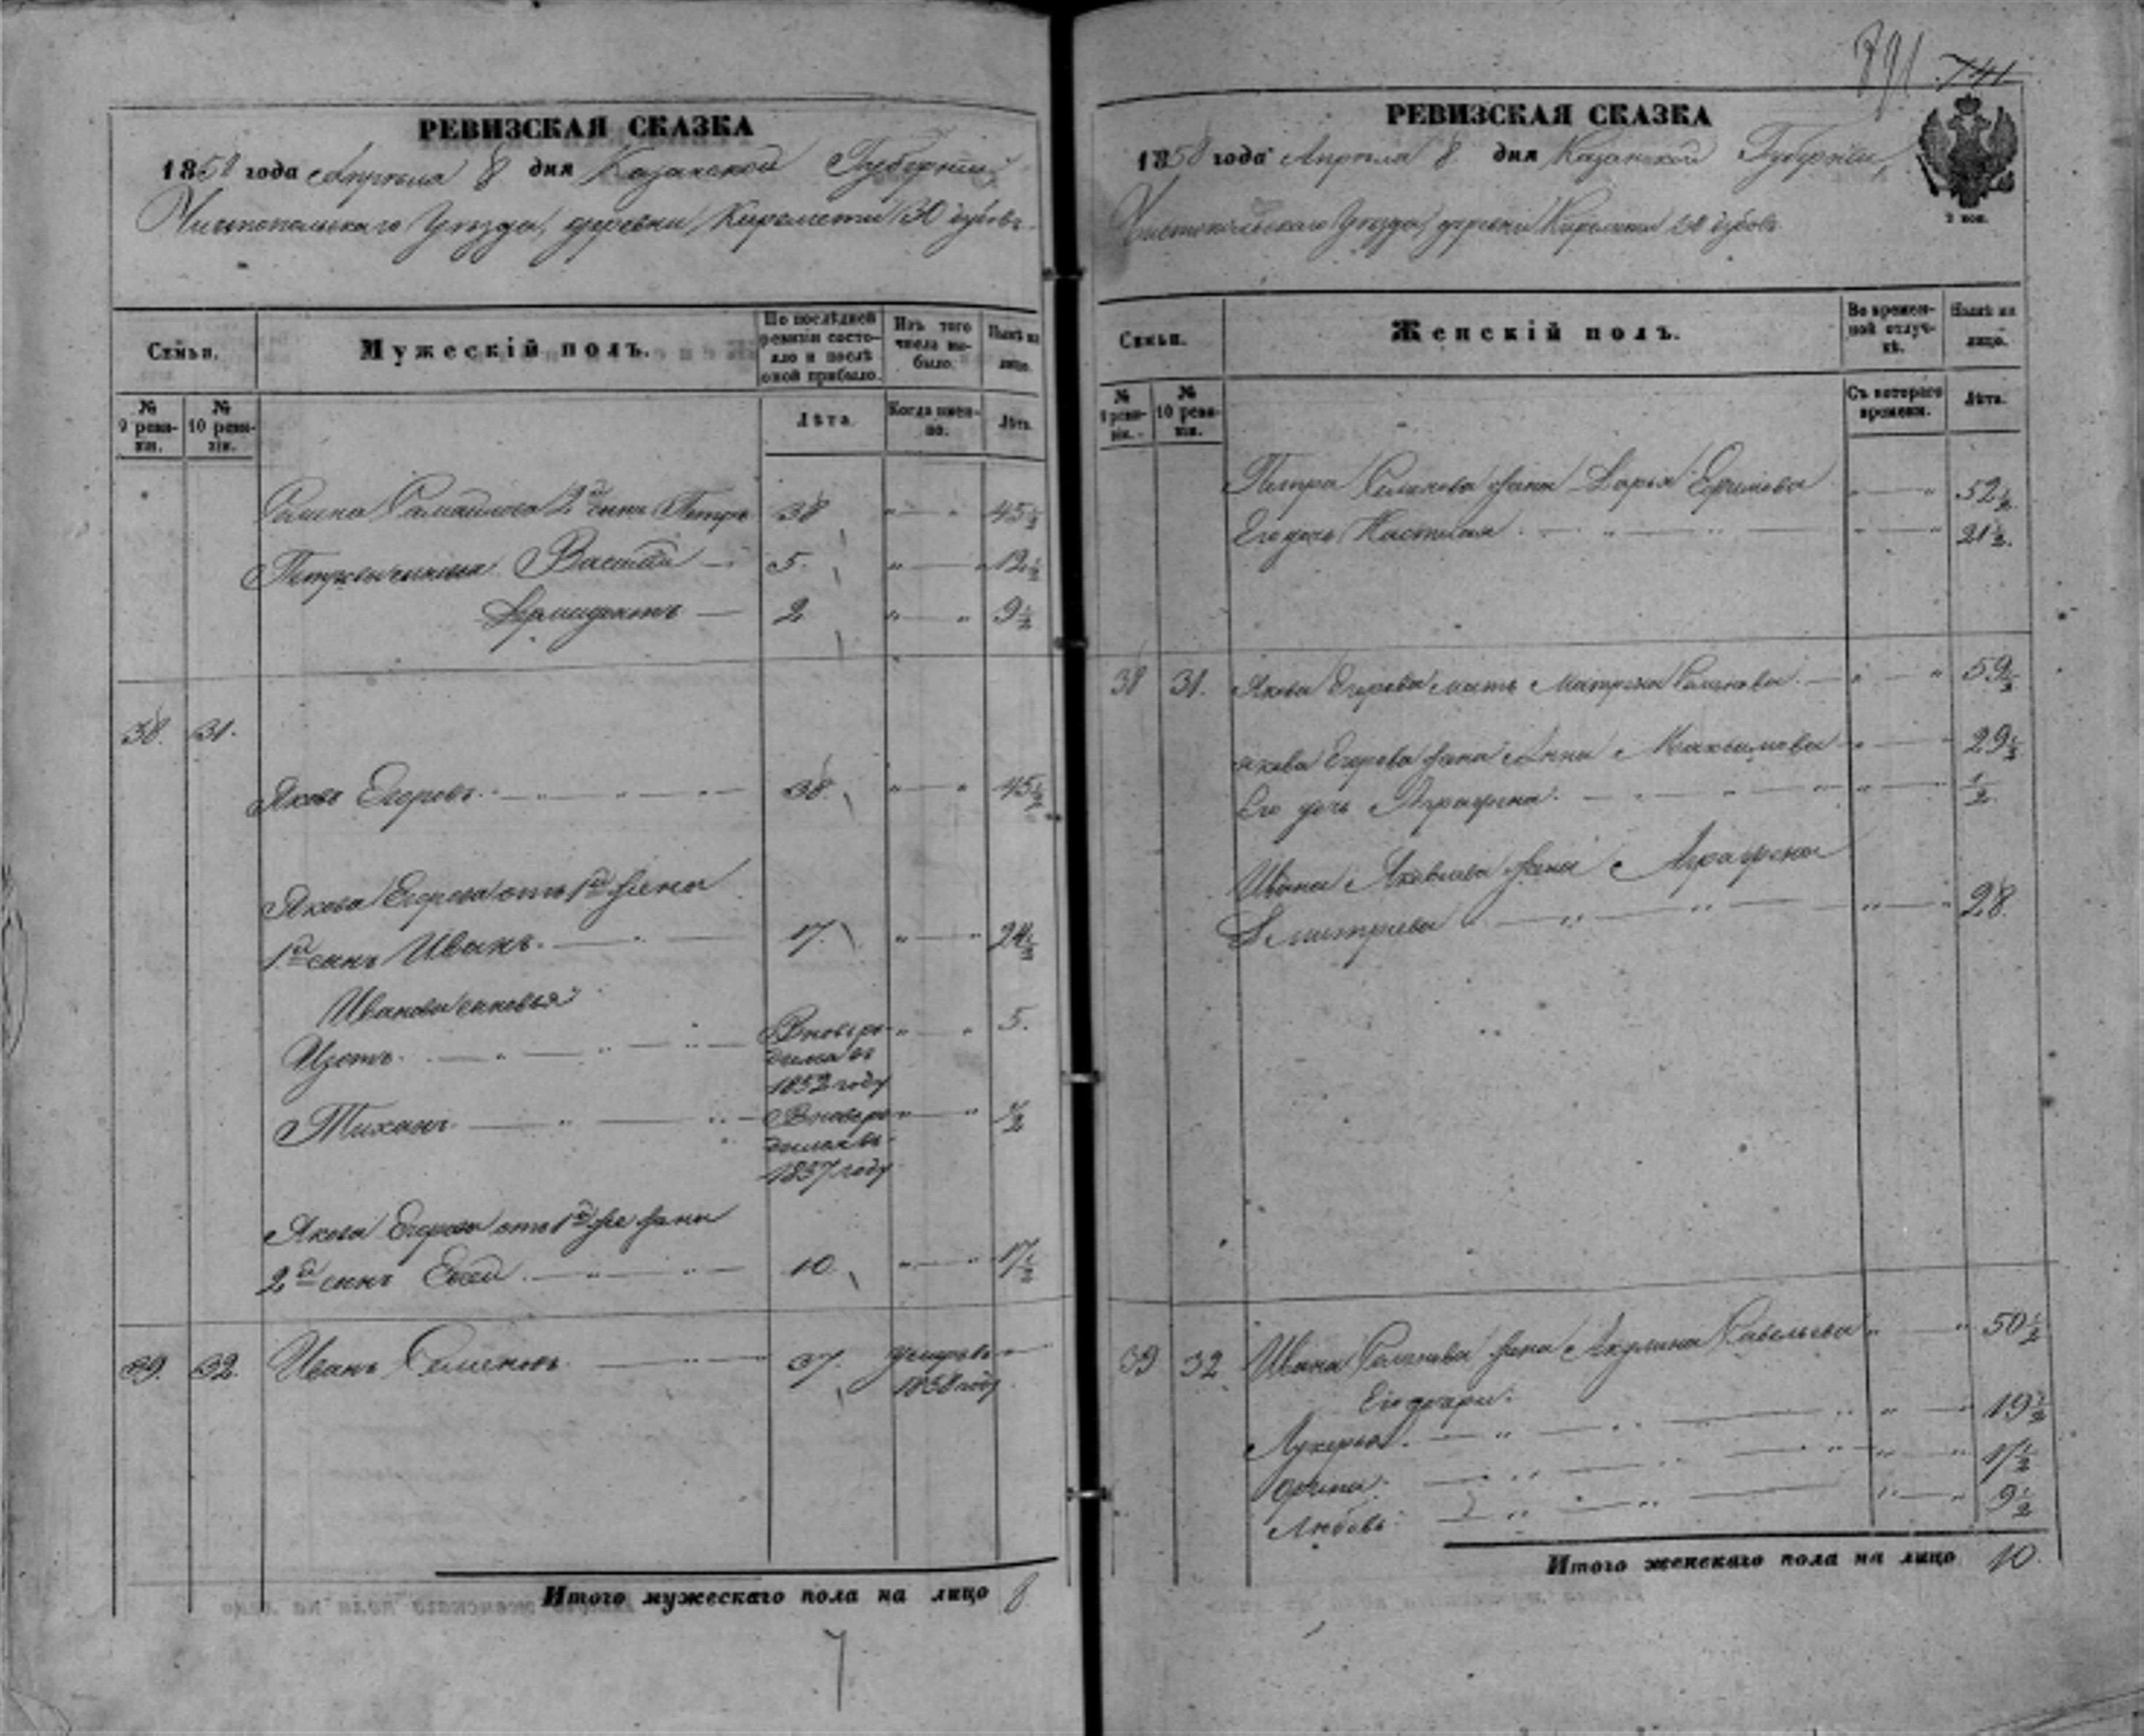 РЕВИЗСКАЯ СКАЗКА
1858 года Апреля 8 дня Казанской Губернии,
Чистопольскаго Уезда, деревни Киремети 30 дубовъ.
Семьи.
Мужескiй полъ.
По послѣдней ревизiи состояло и послѣ оной прибыло.
Изъ того числа выбыло.
Нынѣ на лицо.
№ 9 ревизiи.
№ 10 ревизiи.
Лѣта.
Когда именно.
Лѣта.
2й сынъ Петръ 38 45½
Василiй 5. 12½
2 9½
38. 31.
Яковъ Егоровъ 38. 45½
Якова Егорова отъ 1й жены
1й сынъ Иванъ. 17. 24½
Ивановы сыновья
Изотъ. Вновь родился въ 1852 году 5.
Тиханъ Вновь родился въ 1857 году ½
Якова Егорова отъ 1й же жены
2й сынъ 10. 17½
39. 32. Иванъ Семеновъ 37. умеръ въ 1858 году
Итого мужескаго пола на лицо 8
7
791 741
РЕВИЗСКАЯ СКАЗКА
1858 года Апреля 8 дня Казанской Губернiи,
Чистопольскаго Уезда, деревни Киремети 30 дубовъ
2 коп.
Семьи.
Женскiй полъ.
Во временной отлучкѣ.
Нынѣ на лицо.
№ 9 ревизiи.
№ 10 ревизiи.
Съ котораго времени.
Лѣта.
Петра Семенова жена Дарья Ефимова 52½
Его дочь Настасья 21½.
38 31. Якова Егорова мать Матрена Семенова 59½
Якова Егорова жена Анна Максимова 29½
Его дочь Аграфена. ½
Ивана Яковлева жена Аграфена
Дмитриева 28.
39 32 Ивана Семенова жена Акулина Савельева 50½
Его дочери:
Лукерья. 19½
17½
Любовь. 9½
Итого женскаго пола на лицо 10.